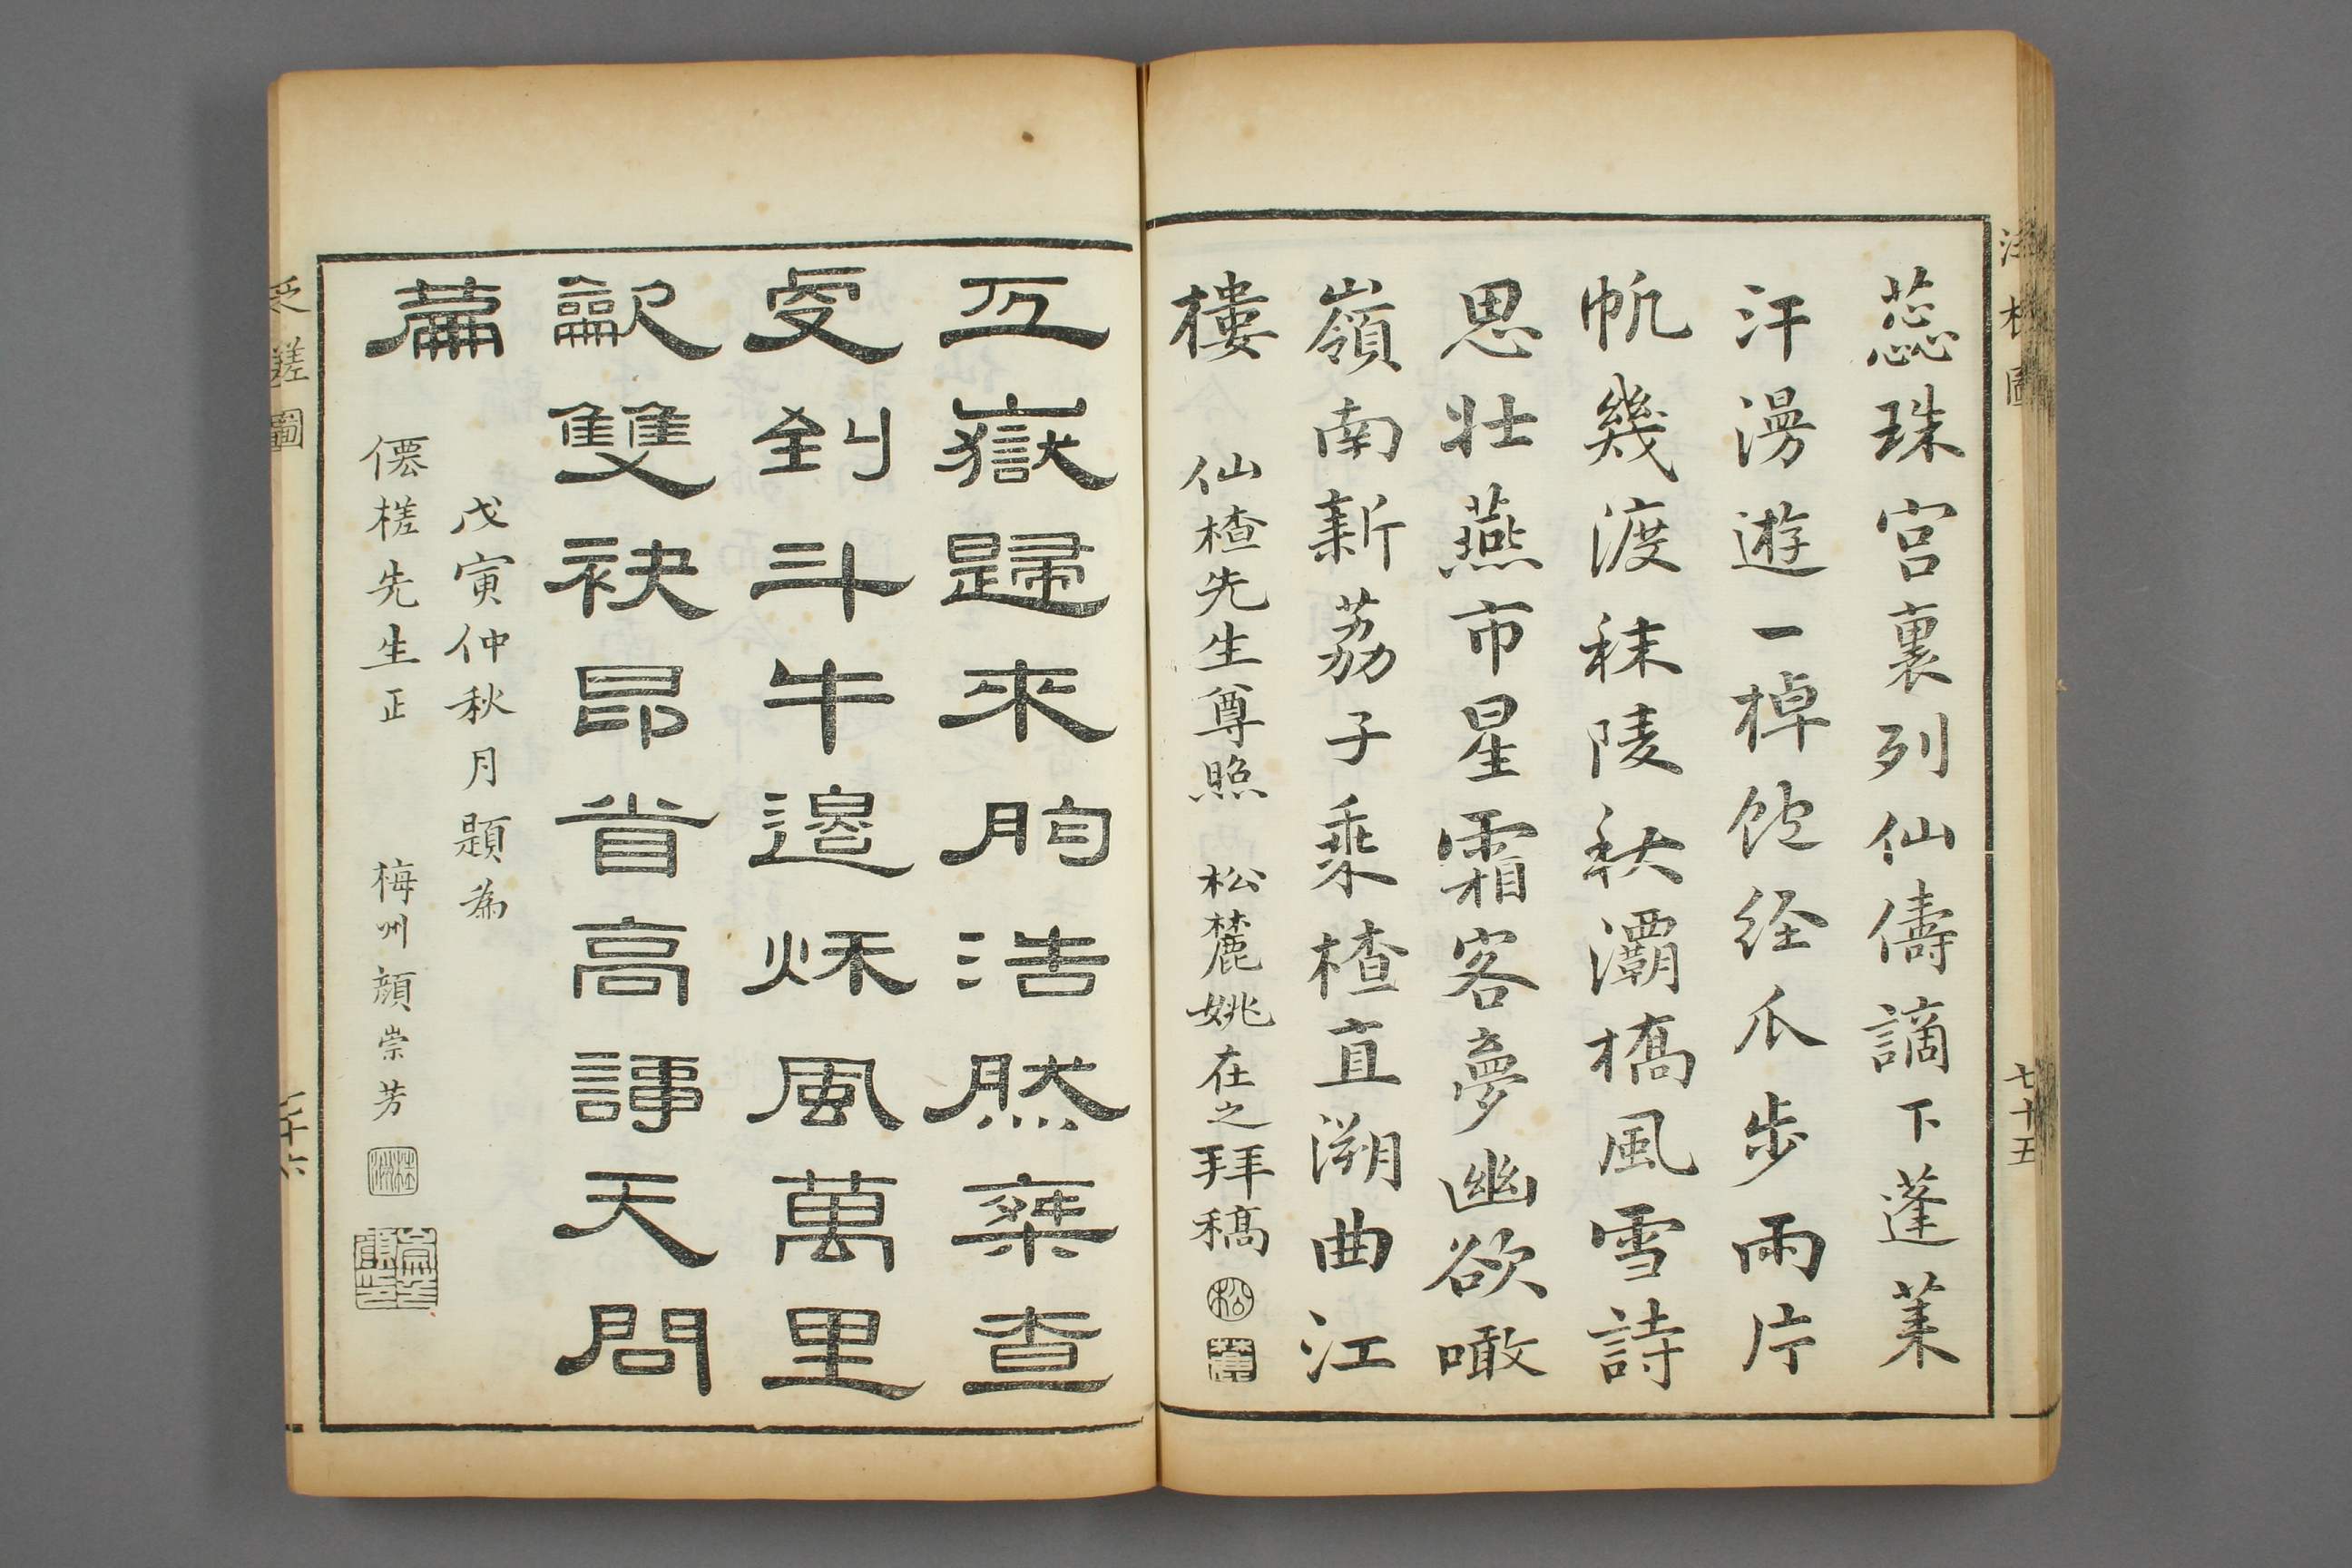 蕊珠宮裏列仙儔謫下蓬萊
汗漫遊一棹飽經爪步雨片
帆幾渡秣陵秋灞橋風雪詩
思壯燕市星霜客夢幽欲噉
嶺南新荔子乘楂直溯曲江
樓
仙楂先生尊照 松麓姚在之拜稿
七十五
五嶽歸來胷浩然乘查
更到斗牛邊烁風萬里
歚雙袂昂首高評天問
篇
戊寅仲秋月題為
僊槎先生正 梅州顏崇芳
槎圖